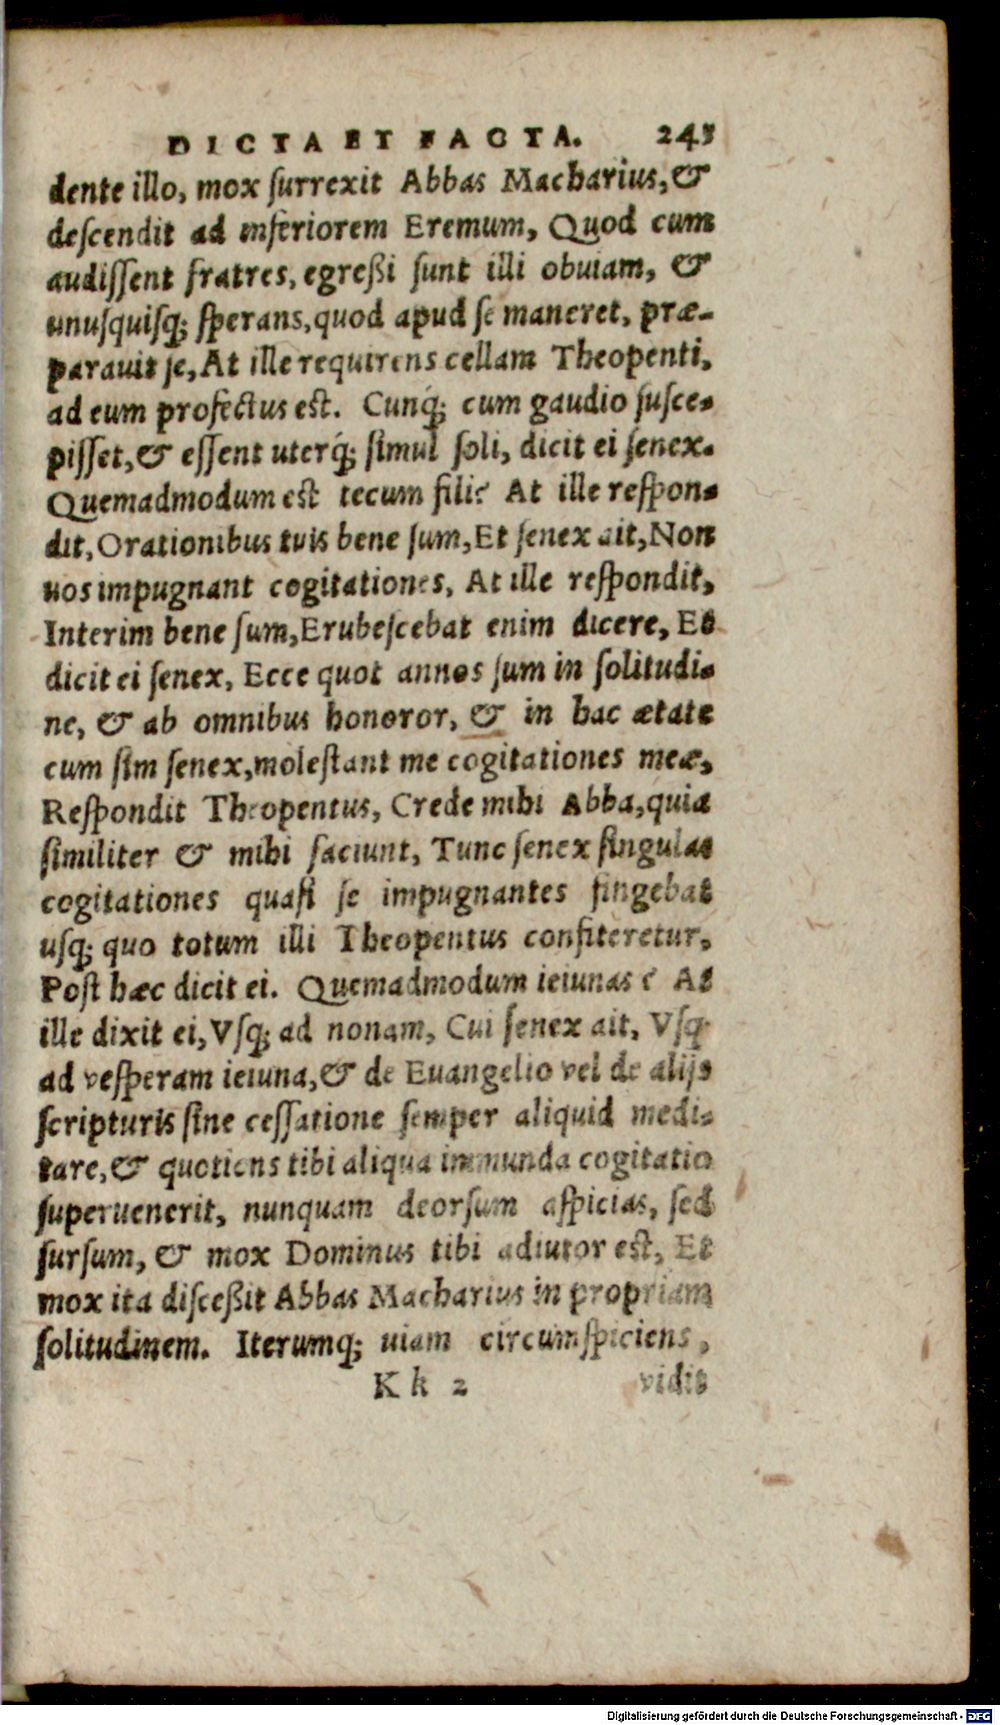 DICTA ET FACTA. 243
dente illo, mox ſurrexit Abbas Macharius, &
deſcendit ad inferiorem Eremum, Quod cum
audiſſent fratres, egreßi ſunt illi obuiam, &
unuſquiſq; ſperans, quod apud ſe maneret, præ-
parauit ſe, At ille requirens cellam Theopenti,
ad eum profectus est. Cunq́; cum gaudio ſuſce-
piſſet, & eſſent uterq́; ſimul ſoli, dicit ei ſenex.
Quemadmodum est tecum fili? At ille reſpon-
dit, Orationibus tuis bene ſum, Et ſenex ait, Non
uos impugnant cogitationes, At ille reſpondit,
Interim bene ſum, Erubeſcebat enim dicere, Et
dicit ei ſenex, Ecce quot annos ſum in ſolitudi-
ne, & ab omnibus honoror, & in hac ætate
cum ſim ſenex, moleſtant me cogitationes meæ,
Reſpondit Theopentus, Crede mihi Abba, quia
ſimiliter & mihi faciunt, Tunc ſenex ſingulas
cogitationes quaſi ſe impugnantes fingebat
uſq; quo totum illi Theopentus confiteretur,
Poſt hæc dicit ei. Quemadmodum ieiunas? At
ille dixit ei, Vſq; ad nonam, Cui ſenex ait, Vſq
ad veſperam ieiuna, & de Euangelio vel de alijs
ſcripturis ſine ceſſatione ſemper aliquid medi-
tare, & quotiens tibi aliqua immunda cogitatio
ſuperuenerit, nunquam deorſum aſpicias, ſed
ſurſum, & mox Dominus tibi adiutor est, Et
mox ita diſceßit Abbas Macharius in propriam
ſolitudinem. Iterumq; uiam circumſpiciens,
Kk 2 vidit
Digitalisierung gefördert durch die Deutsche Forschungsgemeinschaft - DFG